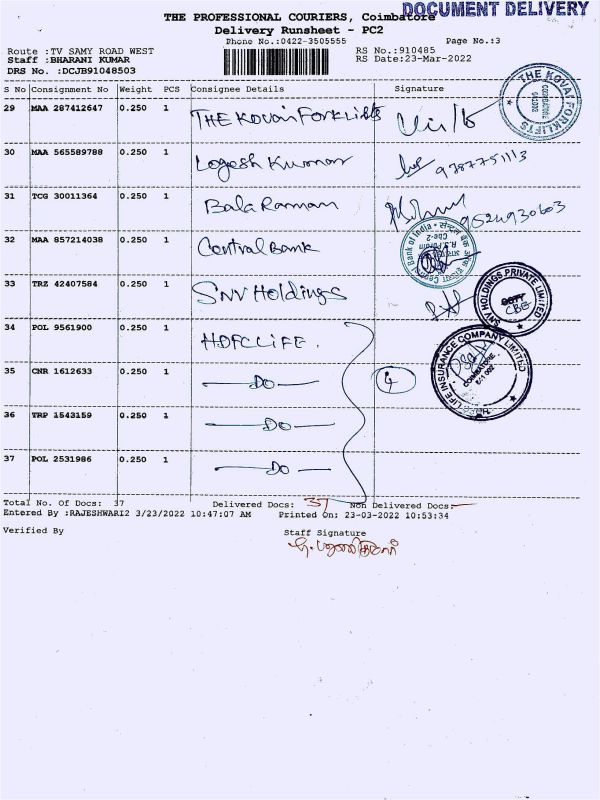 DOCUMENT DELIVERY
THE PROFESSIONAL COURIERS, Coimbatore
Delivery Runsheet - PC2
Phone No.:0422-3505555 Page No.:3
Route :TV SAMY ROAD WEST RS No.:910485
Staff :BHARANI KUMAR RS Date:23-Mar-2022
DRS No. :DCJB91048503
S No Consignment No Weight PCS Consignee Details Signature
29 MAA 287412647 0.250 1 THE Kovai Forklifts
THE KOVAI FORKLIFTS COIMBATORE 641002
30 MAA 565589788 0.250 1 Logesh Kumar 9787751113
31 TCG 30011364 0.250 1 Bala Raman 9524930603
32 MAA 857214038 0.250 1 Central Bank
Central Bank of India R.S. Puram Cbe-2
33 TRZ 42407584 0.250 1 SNV Holdings
SNV HOLDINGS PRIVATE LIMITED CBE
34 POL 9561900 0.250 1 HDFC LIFE.
HDFC LIFE INSURANCE COMPANY LIMITED COIMBATORE
35 CNR 1612633 0.250 1 —Do— 4
36 TRP 1543159 0.250 1 —Do—
37 POL 2531986 0.250 1 —Do—
Total No. Of Docs: 37 Delivered Docs: 37 Non Delivered Docs:—
Entered By :RAJESHWARI2 3/23/2022 10:47:07 AM Printed On: 23-03-2022 10:53:34
Verified By Staff Signature